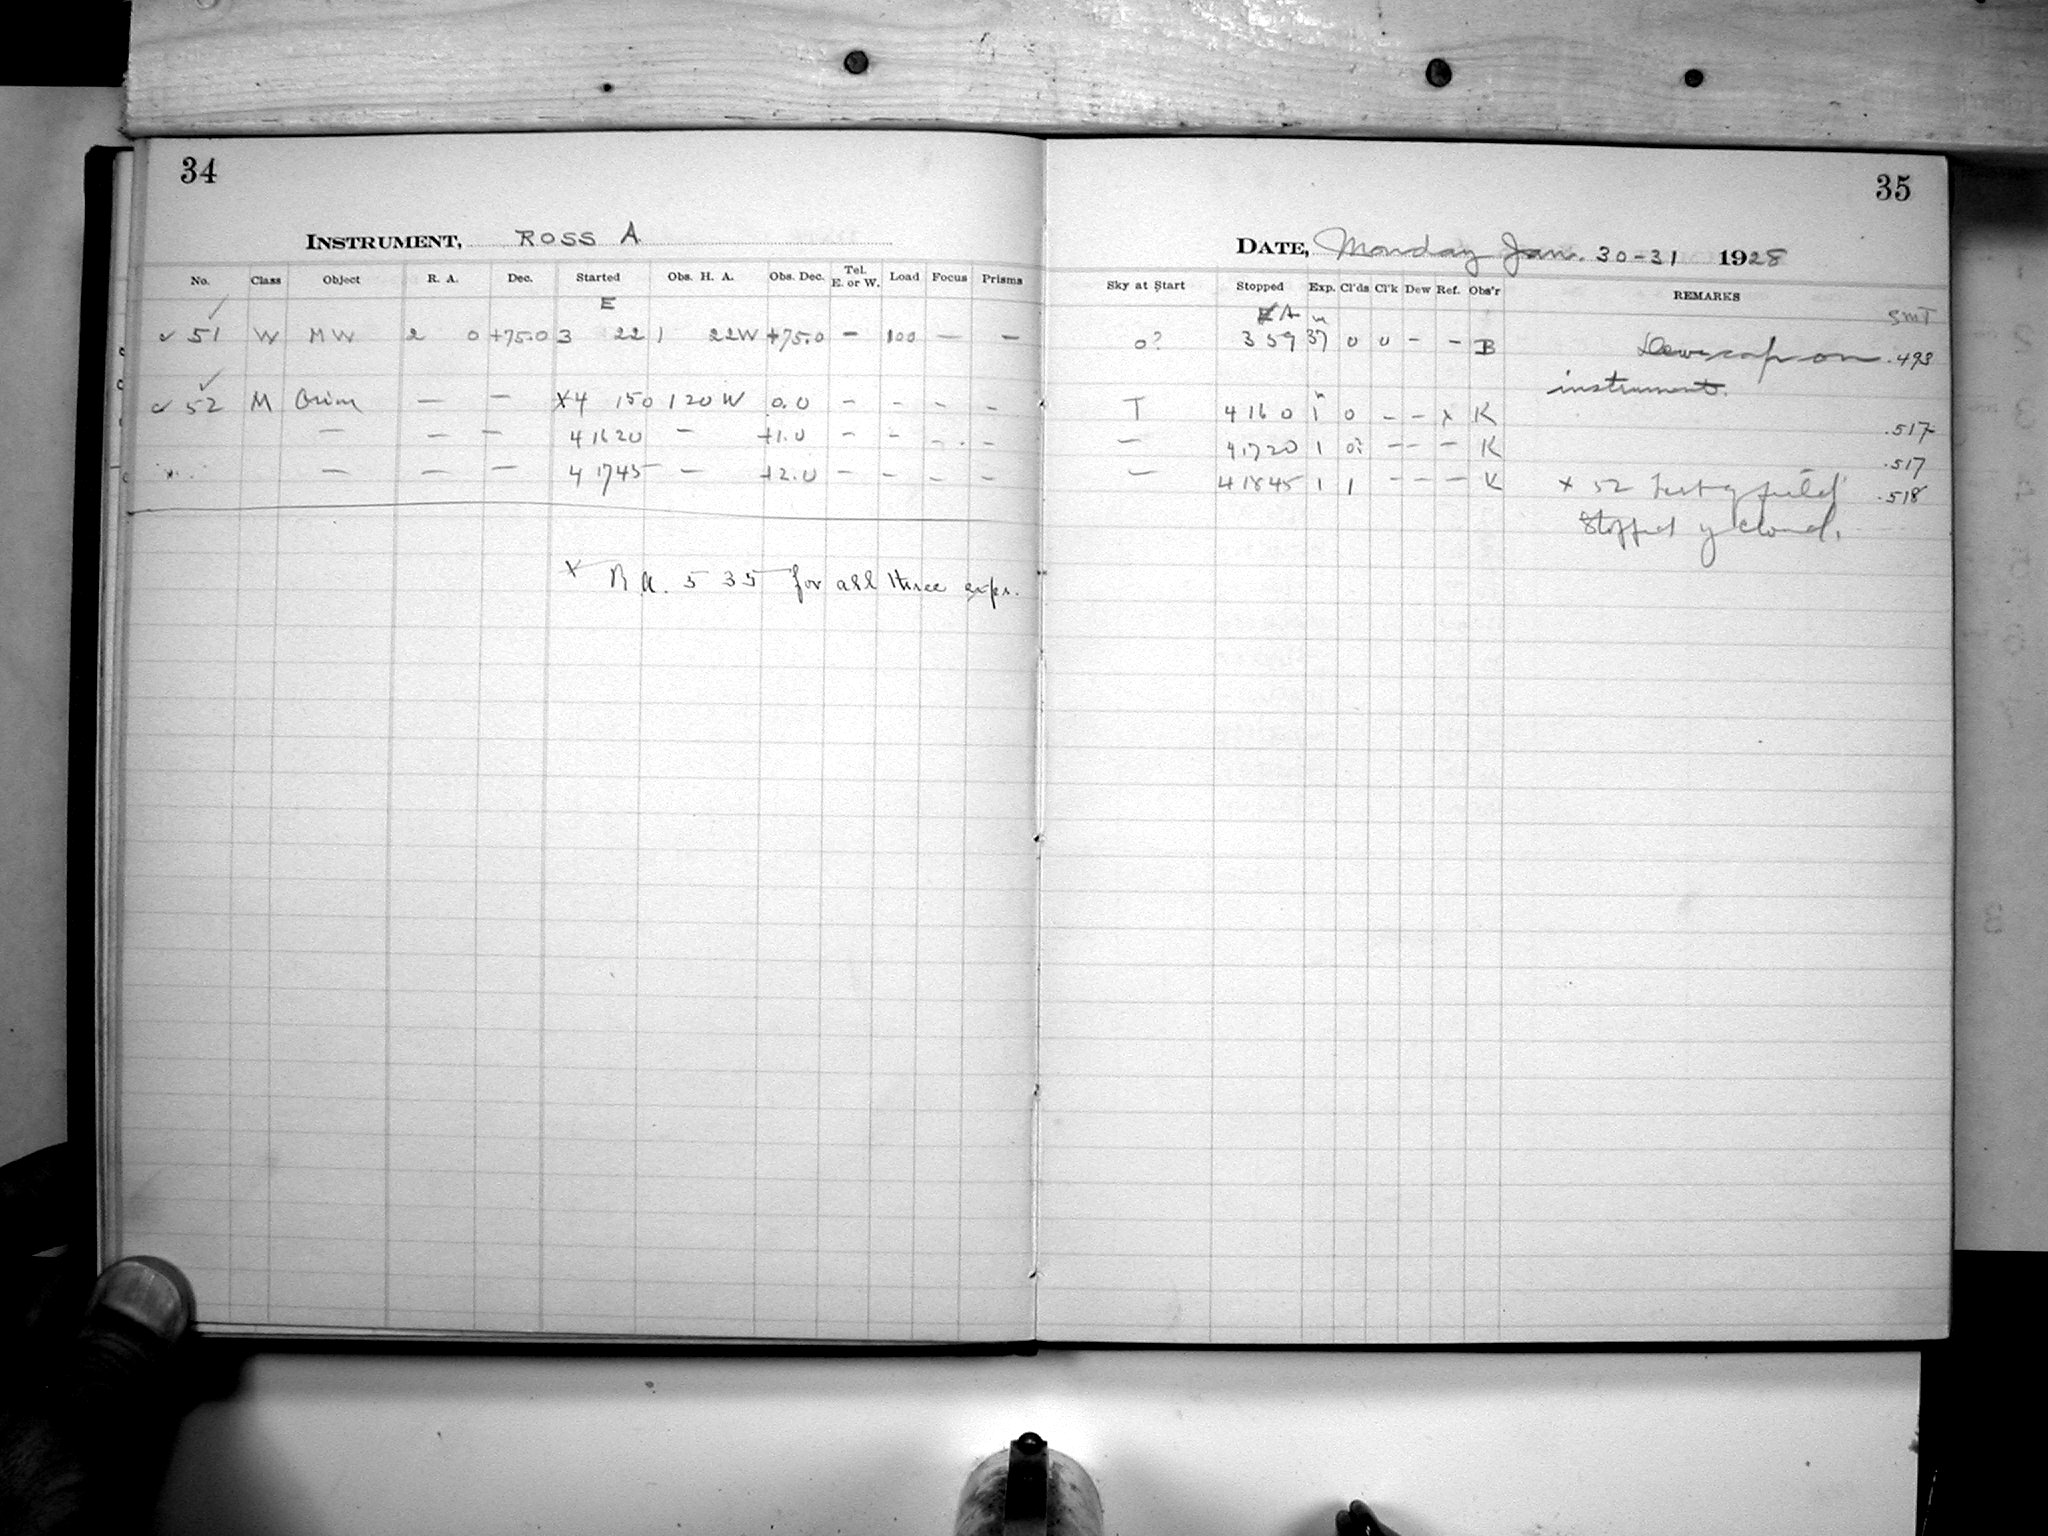 34
INSTRUMENT, ROSS A
No. Class Object R. A. Dec. Started Obs. H. A. Obs. Dec. Tel. E. or W. Load Focus Prisms
E
✓ 51 W MW 2 0 +75.0 3 22 1 22W +75.0 — 100 — —
✓ 52 M Orion — — X4 15 0 1 20 W 0.0 — — — —
— — — 4 16 20 — +1.0 — — — —
— — — 4 17 45 — +2.0 — — — —
X R.A. 5 35 for all three exps.
35
DATE, Monday Jan. 30-31 1928
Sky at Start Stopped Exp. Cl'ds Cl'k Dew Ref. Obs'r REMARKS
A m SMT
0? 3 59 37 0 0 — — B Dewcap on .493
instrument.
T 4 16 0 1 0 — — x K .517
— 4 17 20 1 0? — — — K .517
— 4 18 45 1 1 — — — K x 52 Test of field .518
Stopped by cloud.